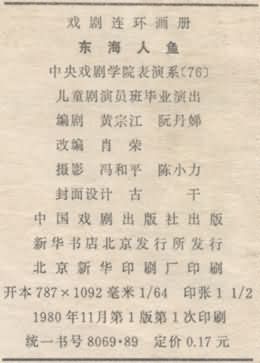 戏剧连环画册
东海人鱼
中央戏剧学院表演系〔76〕
儿童剧演员班毕业演出
编剧 黄宗江 阮丹娣
改编 肖荣
摄影 冯和平 陈小力
封面设计 古干
中国戏剧出版社出版
新华书店北京发行所发行
北京新华印刷厂印刷
开本 787×1092 毫米 1/64 印张 1 1/2
1980年11月第1版第1次印刷
统一书号 8069·89 定价 0.17 元